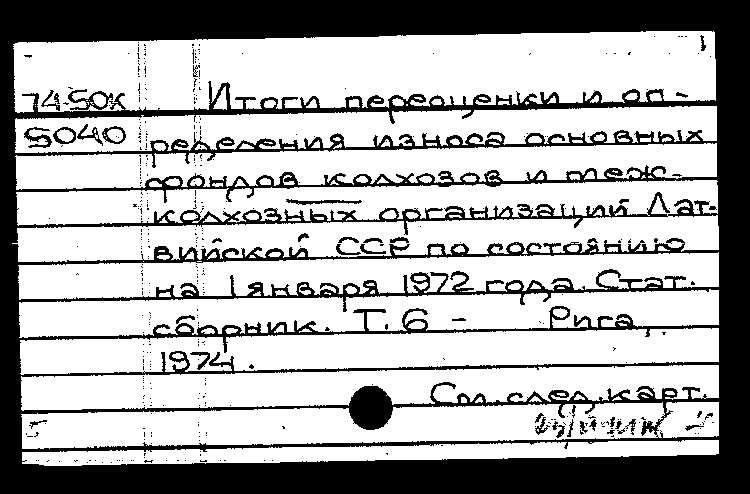 1
74-50К Итоги переоценки и оп-
5040 ределения износа основных
фондов колхозов и меж-
колхозных организаций Лат-
вийской ССР по состоянию
на 1 января 1972 года. Стат.
сборник. Т. 6 - Рига,
1974.
См. след. карт.
5